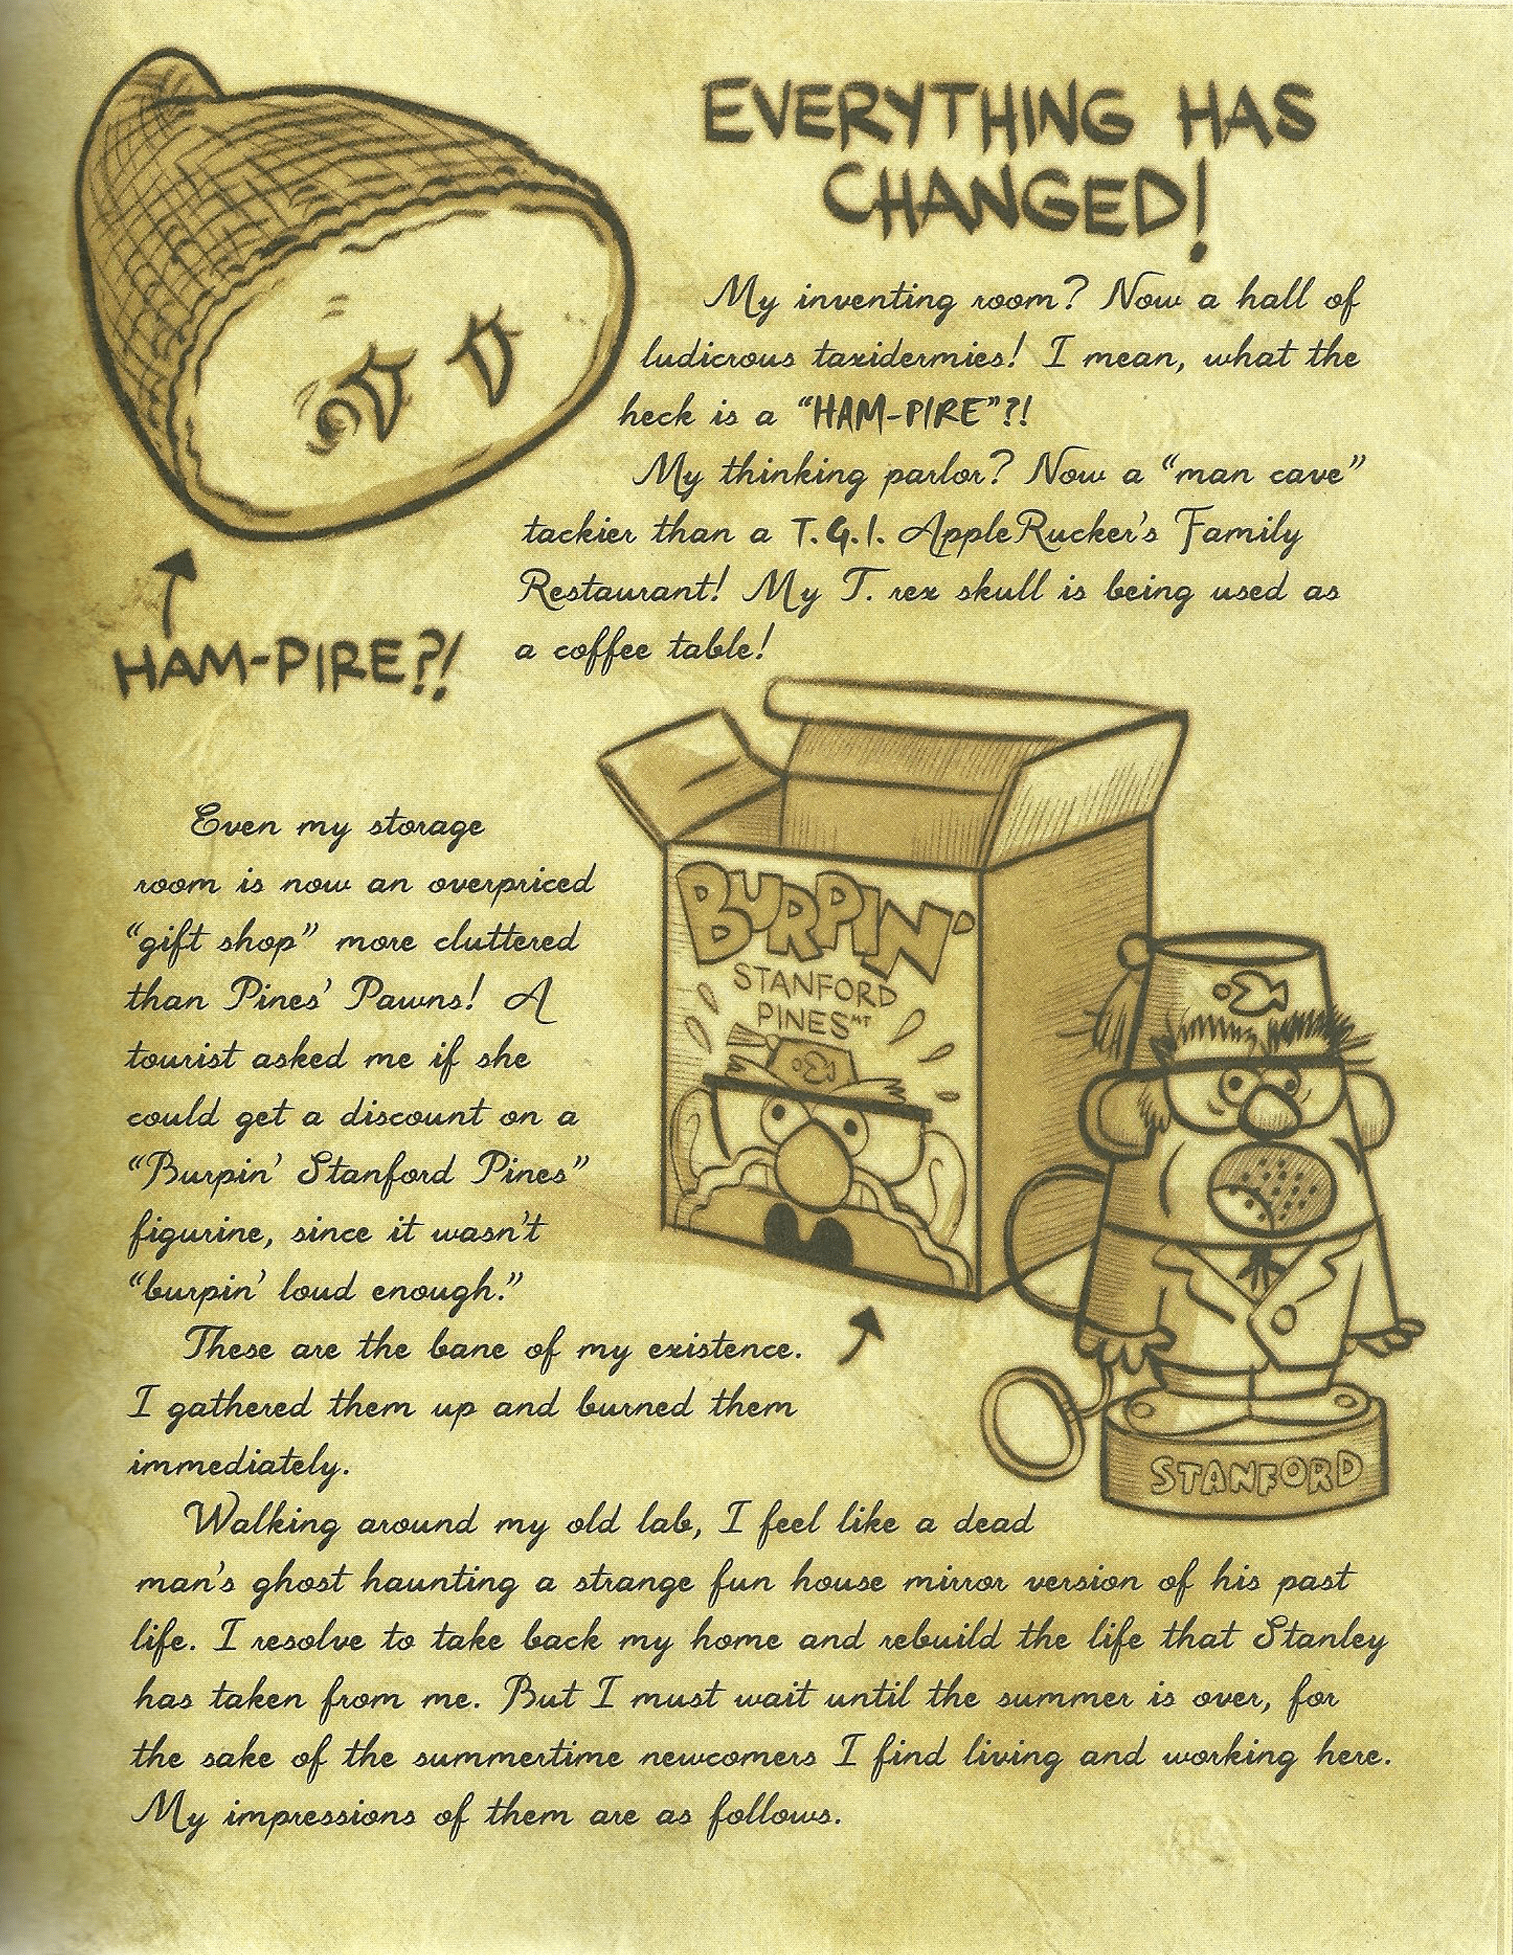 EVERYTHING HAS
CHANGED!
My inventing room? Now a hall of
ludicrous taxidermies! I mean, what the
heck is a “HAM-PIRE”?!
My thinking parlor? Now a “man cave”
tackier than a T.G.I. AppleRucker's Family
Restaurant! My T. rex skull is being used as
a coffee table!
HAM-PIRE?!
Even my storage
room is now an overpriced
“gift shop” more cluttered
than Pines' Pawns! A
tourist asked me if she
could get a discount on a
“Burpin' Stanford Pines”
figurine, since it wasn't
“burpin' loud enough.”
These are the bane of my existence.
I gathered them up and burned them
immediately.
BURPIN'
STANFORD
PINES MT
STANFORD
Walking around my old lab, I feel like a dead
man's ghost haunting a strange fun house mirror version of his past
life. I resolve to take back my home and rebuild the life that Stanley
has taken from me. But I must wait until the summer is over, for
the sake of the summertime newcomers I find living and working here.
My impressions of them are as follows.